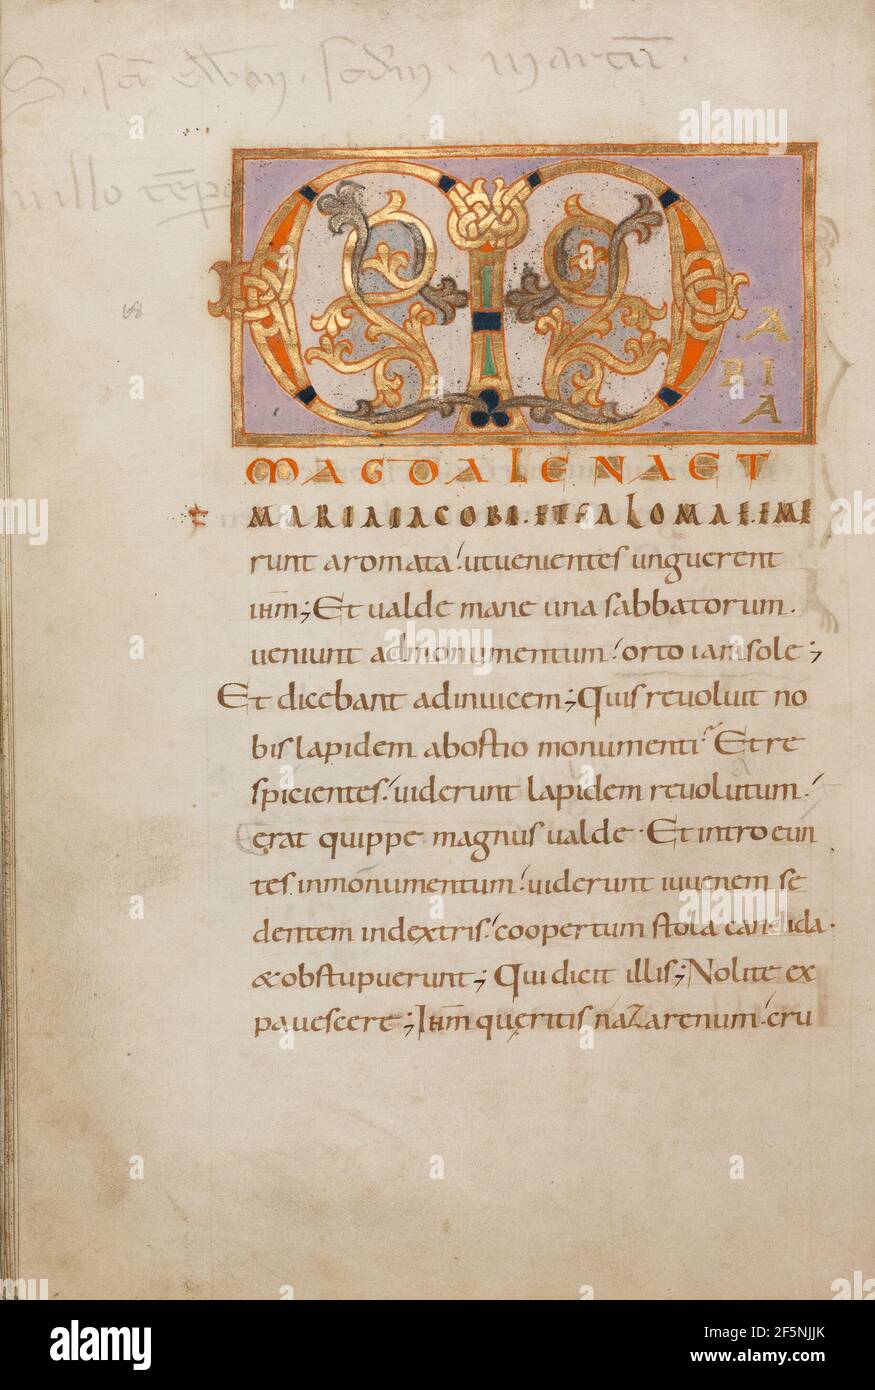 M
A
RI
A
MAGDALENA ET
MARIA IACOBI · ET SALOMAE · EME
runt aromata · ut uenientes unguerent
ihm; Et ualde mane una sabbatorum ·
ueniunt ad monumentum · orto iam sole;
Et dicebant adinuicem; Quis reuoluit no
bis lapidem ab ostio monumenti Et re
spicientes · uiderunt lapidem reuolutum ·
erat quippe magnus ualde · Et introeun
tes in monumentum · uiderunt iuuenem se
dentem in dextris · coopertum stola candida ·
& obstupuerunt; Qui dicit illis; Nolite ex
pauescere; Ihm queritis nazarenum · cru
alamy
Image ID: 2F5NJJK
www.alamy.com